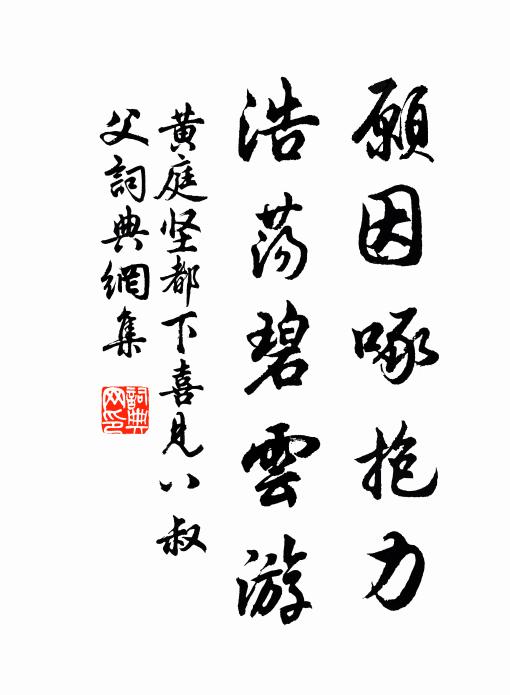 願因啄抱力
浩蕩碧雲游
黃庭坚都下喜見八叔
父詞典網集
詞典
网印